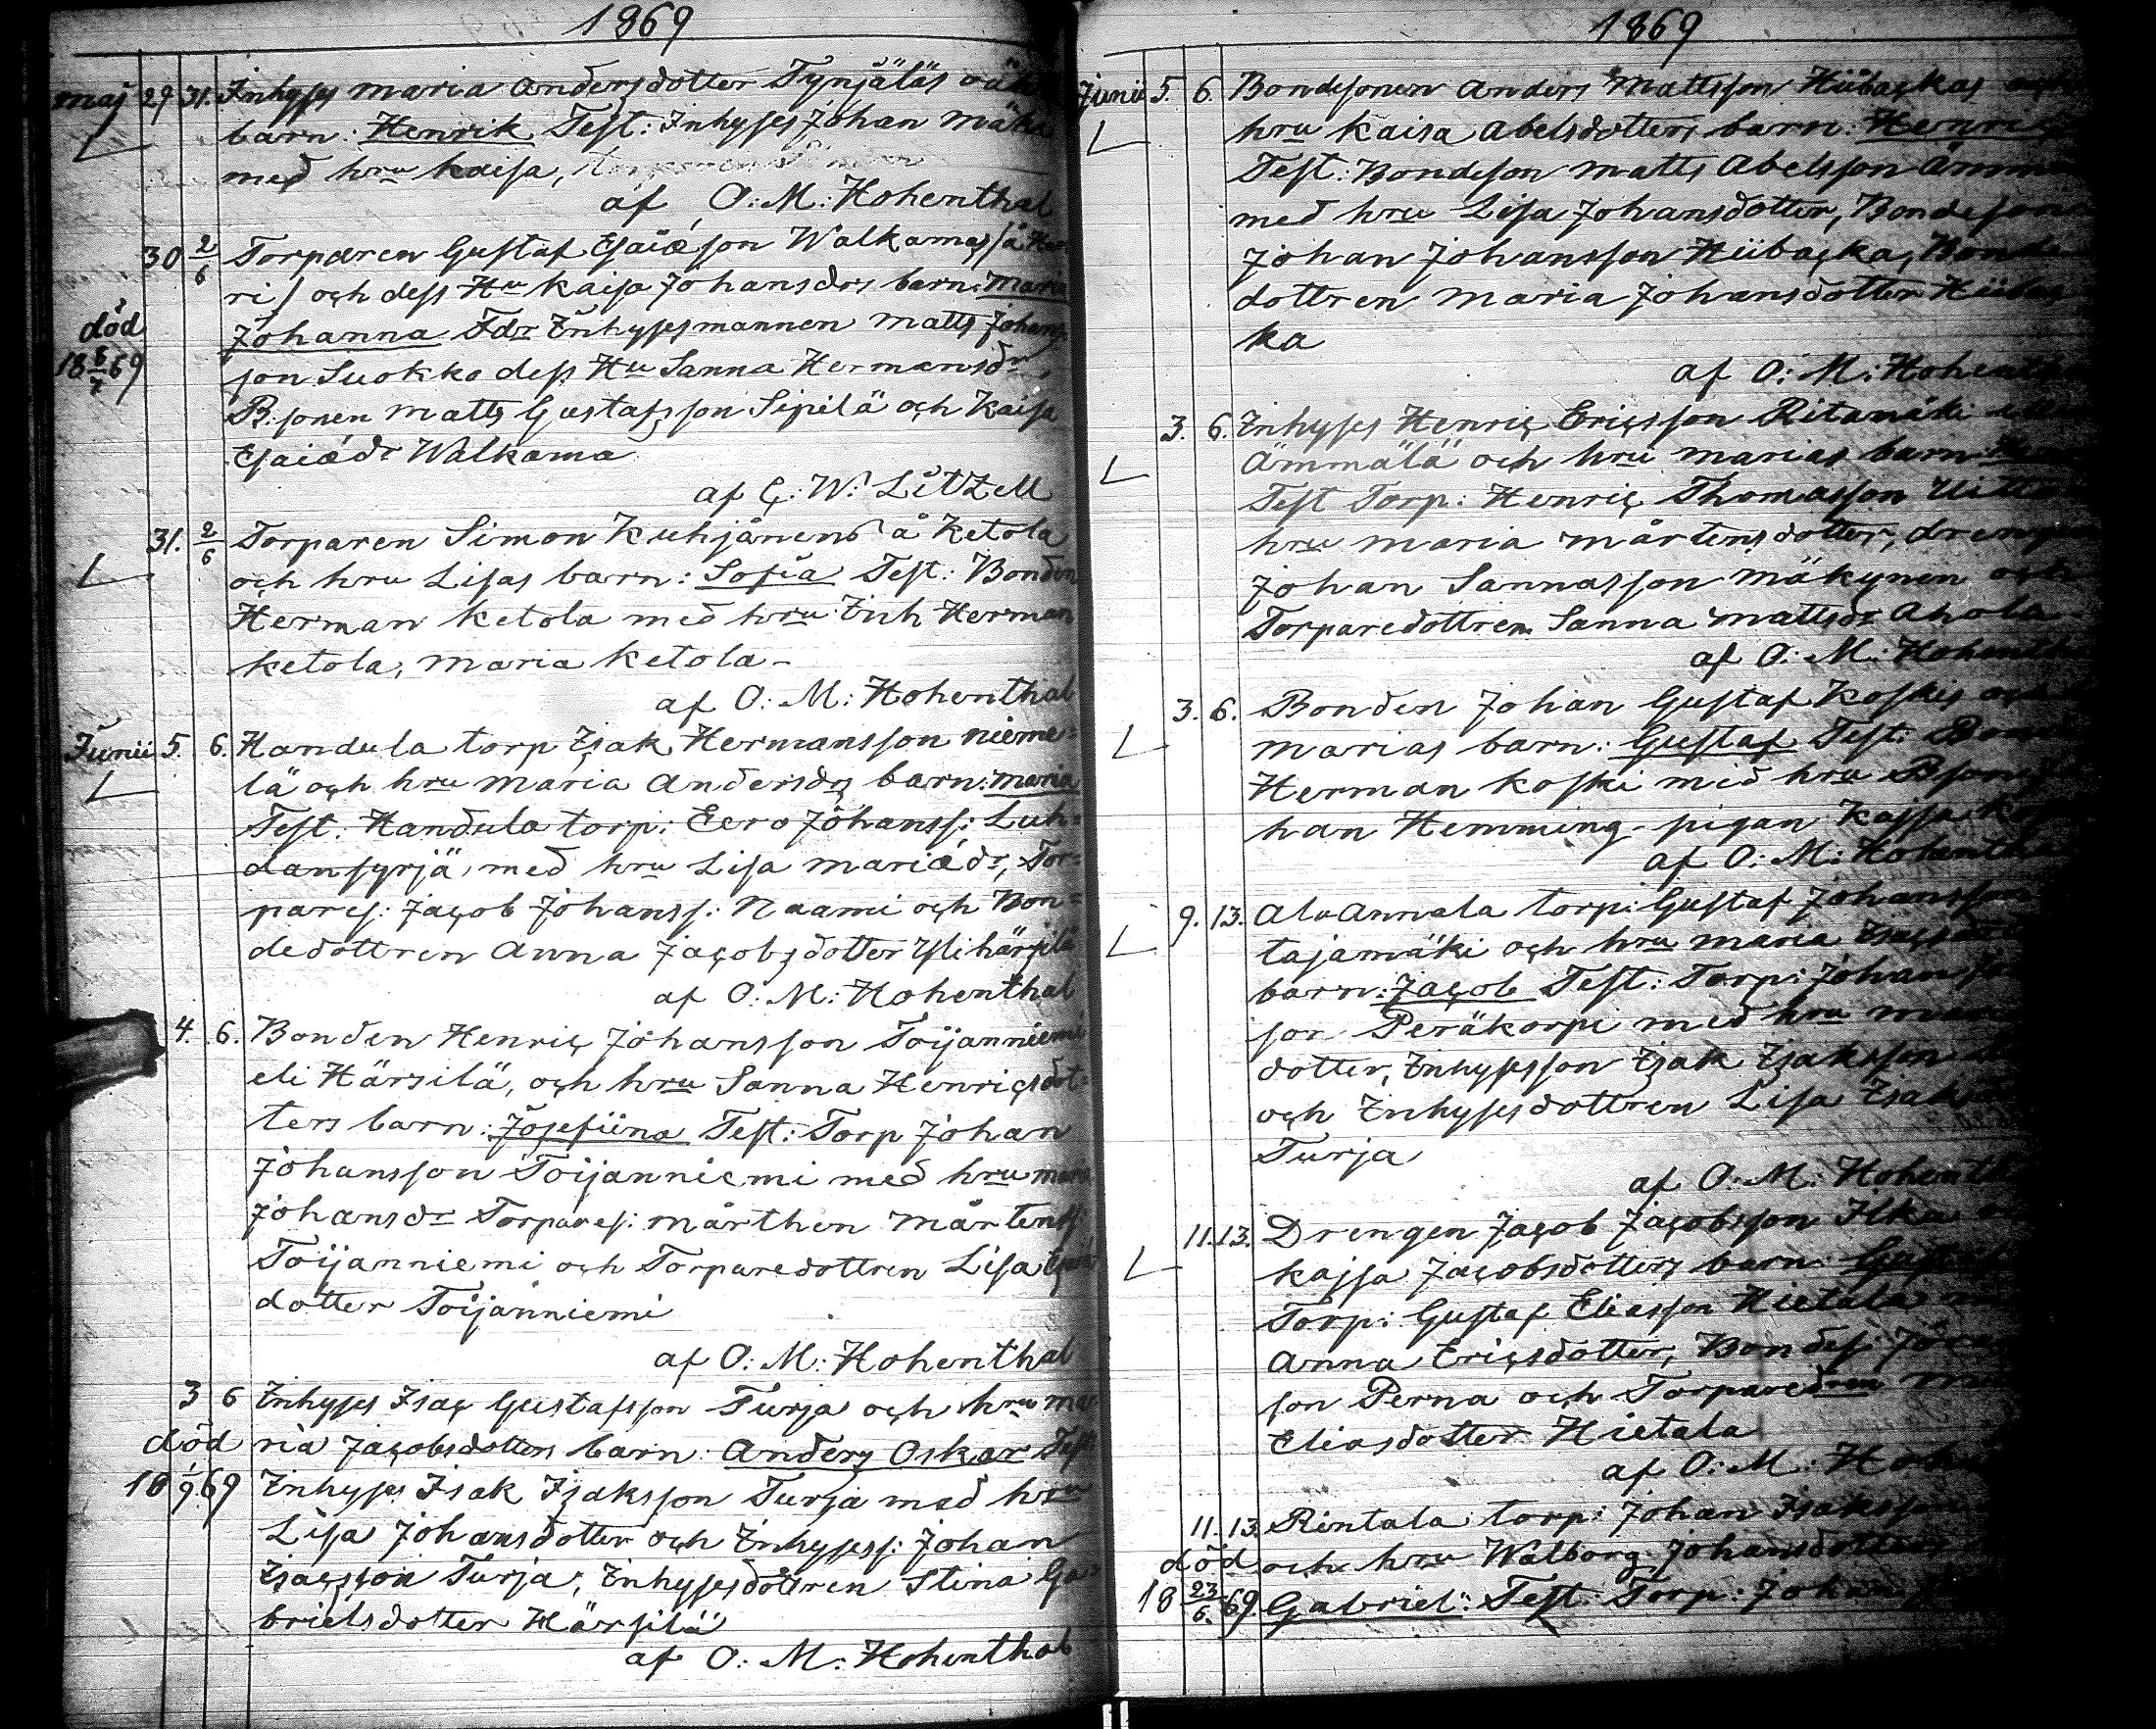 1869
maj 29 31. Inhyses Maria Andersdotter Tynjäläs oäkta
barn: Henrik Test: Inhyses Johan Mäki
med hru Kaisa,
af O: M: Hohenthal
30 2/6 Torparen Gustaf Esaiæson Walkamas (å Har-
ri) och dess Hu Kaisa Johansdrs barn: Maria
död Johanna Fdr Inhysesmannen Matts Johans-
18 6/7 69 son Suokko dess Hu Sanna Hermansdr,
B:sonen Matts Gustafsson Sipilä och Kaisa
Esaiædr Walkama
af C: W: Litzell
31. 2/6 Torparen Simon Kuhjånens å Ketola
och hru Lisas barn: Sofia Test: Bonden
Herman Ketola med hru Inh Herman
Ketola, Maria Ketola –
af O: M: Hohenthal
Junii 5. 6. Handula torp Isak Hermansson Nieme=
lä och hru Maria Andersdrs barn: Maria
Test: Handula torp: Eero Johanss: Luh=
dansyrjä, med hru Lisa Mariædr, Tor=
pares: Jacob Johanss: Naami och Bon=
dedottren Anna Jacobsdotter Ylihärsilä
af O: M: Hohenthal
4. 6. Bonden Henric Johansson Toijanniemi
eli Härsilä, och hru Sanna Henricsdot=
ters barn: Josefiina Test: Torp Johan
Johansson Toijanniemi med hru Maria
Johansdr Torpares: Mårthen Mårtenss:
Toijanniemi och Torparedottren Lisa
dotter Toijanniemi
af O: M: Hohenthal
3 6 Inhyses Isac Gustafsson Turja och hru Ma-
död ria Jacobsdotters barn: Anders Oskar Test
18 1/9 69 Inhyses Isak Isaksson Turja med hru
Lisa Johansdotter och Inhysess: Johan
Isacsson Turja, Inhysesdottren Stina Ga-
brielsdotter Härsilä
af O: M: Hohenthal
1869
Junii 5. 6. Bondesonen Anders Mattsson Hiibackas och
hru Kaisa Abelsdotters barn: Henric
Test: Bondeson Matts Abelsson
med hru Lisa Johansdotter, Bondeson
Johan Johansson Hiibacka, Bonde
dottren Maria Johansdotter Hiibac
ka
af O: M: Hohenthal
3. 6. Inhyses Henric Ericsson Ritamäki
Ämmälä och hru Marias barn:
Test Torp: Henric Thomasson
hru Maria Mårtensdotter, drengen
Johan Sannasson Mäkynen och
Torparedottren Sanna Mattsdr Ahola
af O: M: Hohenthal
3. 6. Bonden Johan Gustaf Koskis och
Marias barn: Gustaf Test: Bond
Herman Koski med hru Bson
han Hemming pigan Kajsa
af O: M: Hohenthal
9. 13. Ala Annala torp: Gustaf Johansson
tajamäki och hru Maria
barn: Jacob Test: Torp: Johan
son Peräkorpi med hru
dotter, Inhysesson Isak Isaksson
och Inhysesdottren Lisa
Turja
af O: M: Hohenthal
11. 13. Drengen Jacob Jacobsson Ilka
Kajsa Jacobsdotters barn:
Torp: Gustaf Eliasson Hietala
Anna Ericsdotter, Bondes:
son Perna och Torparedren
Eliasdotter Hietala
af O: M: Hohenthal
11. 13. Rintala torp: Johan Isaksson
död och hru Walborg Johansdotters
18 23/6. 69. Gabriel: Test: Torp: Johan